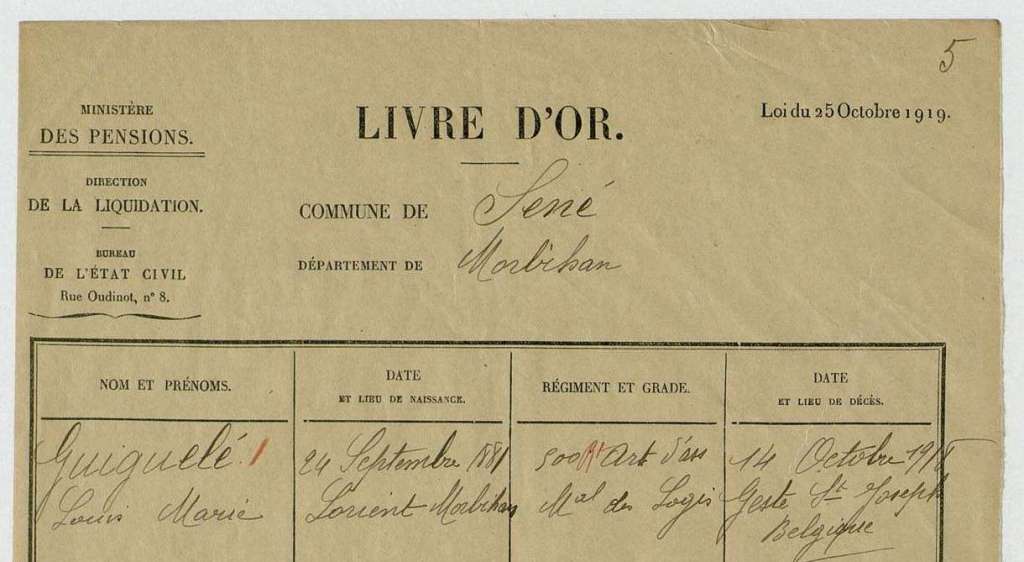 5
MINISTÈRE
DES PENSIONS.
DIRECTION
DE LA LIQUIDATION.
BUREAU
DE L'ÉTAT CIVIL
Rue Oudinot, n° 8.
LIVRE D'OR.
Loi du 25 Octobre 1919.
COMMUNE DE Sené
DÉPARTEMENT DE Morbihan
NOM ET PRÉNOMS.
DATE
ET LIEU DE NAISSANCE.
RÉGIMENT ET GRADE.
DATE
ET LIEU DE DÉCÈS.
Guiguelé
Louis Marie
24 Septembre 1881
Lorient Morbihan
500 Rt Art d'ass
Mal des Logis
14 Octobre
Geste St Joseph
Belgique